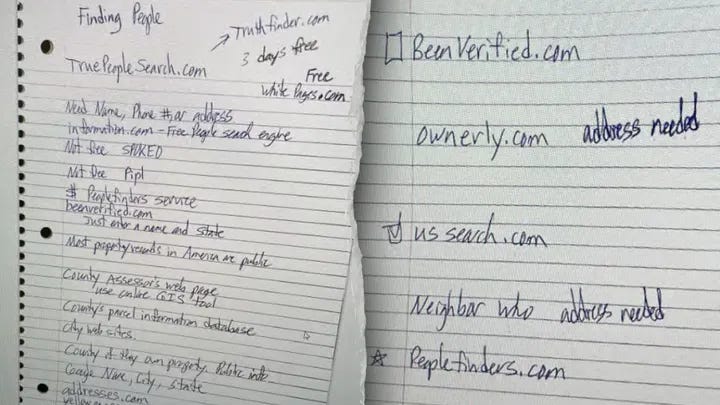 Finding People
Truthfinder.com
3 days free
TruePeopleSearch.com
Free
White Pages.com
Need Name, Phone #, or address
information.com - Free People search engine
Not free SPOKEO
Not free Pipl
$ Peoplefinders service
beenverified.com
Just enter a name and state
Most property records in America are public
County Assessor's web page
use online GIS tool
County's parcel information database
City web sites.
County if they own property. Public info
Google Name, City, State
addresses.com
BeenVerified.com
ownerly.com address needed
us search.com
Neighbor Who address needed
Peoplefinders.com